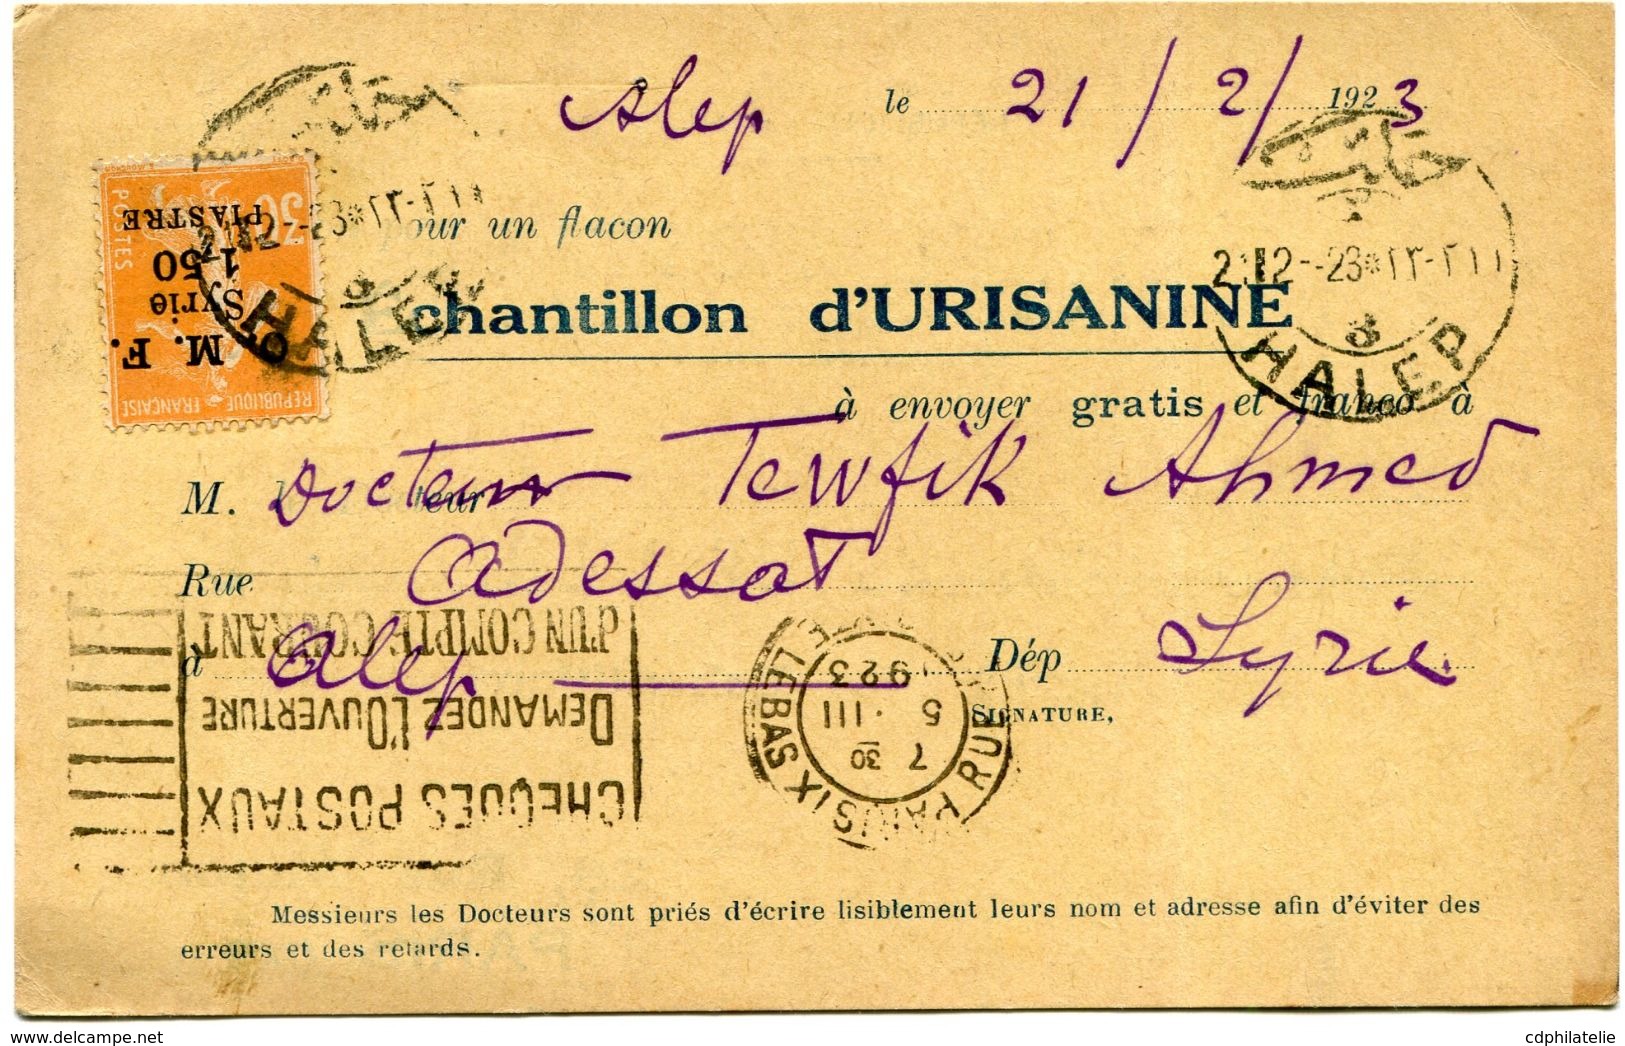 Alep le 21/2/1923
pour un flacon
Echantillon d'URISANINE
à envoyer gratis et franco à
M. Docteur Tewfik Ahmed
Rue Adessat
à Alep Dép Syrie
SIGNATURE,
Messieurs les Docteurs sont priés d'écrire lisiblement leurs nom et adresse afin d'éviter des
erreurs et des retards.
RÉPUBLIQUE FRANÇAISE
POSTES
30
O. M. F.
Syrie
1 50
PIASTRE
HALEP
حلب
21-2--23*
HALEP
CHÈQUES POSTAUX
DEMANDEZ L'OUVERTURE
D'UN COMPTE COURANT
PARIS IX RUE
LEBAS
7 30
5 · III
923
cdphilatelie
www.delcampe.net